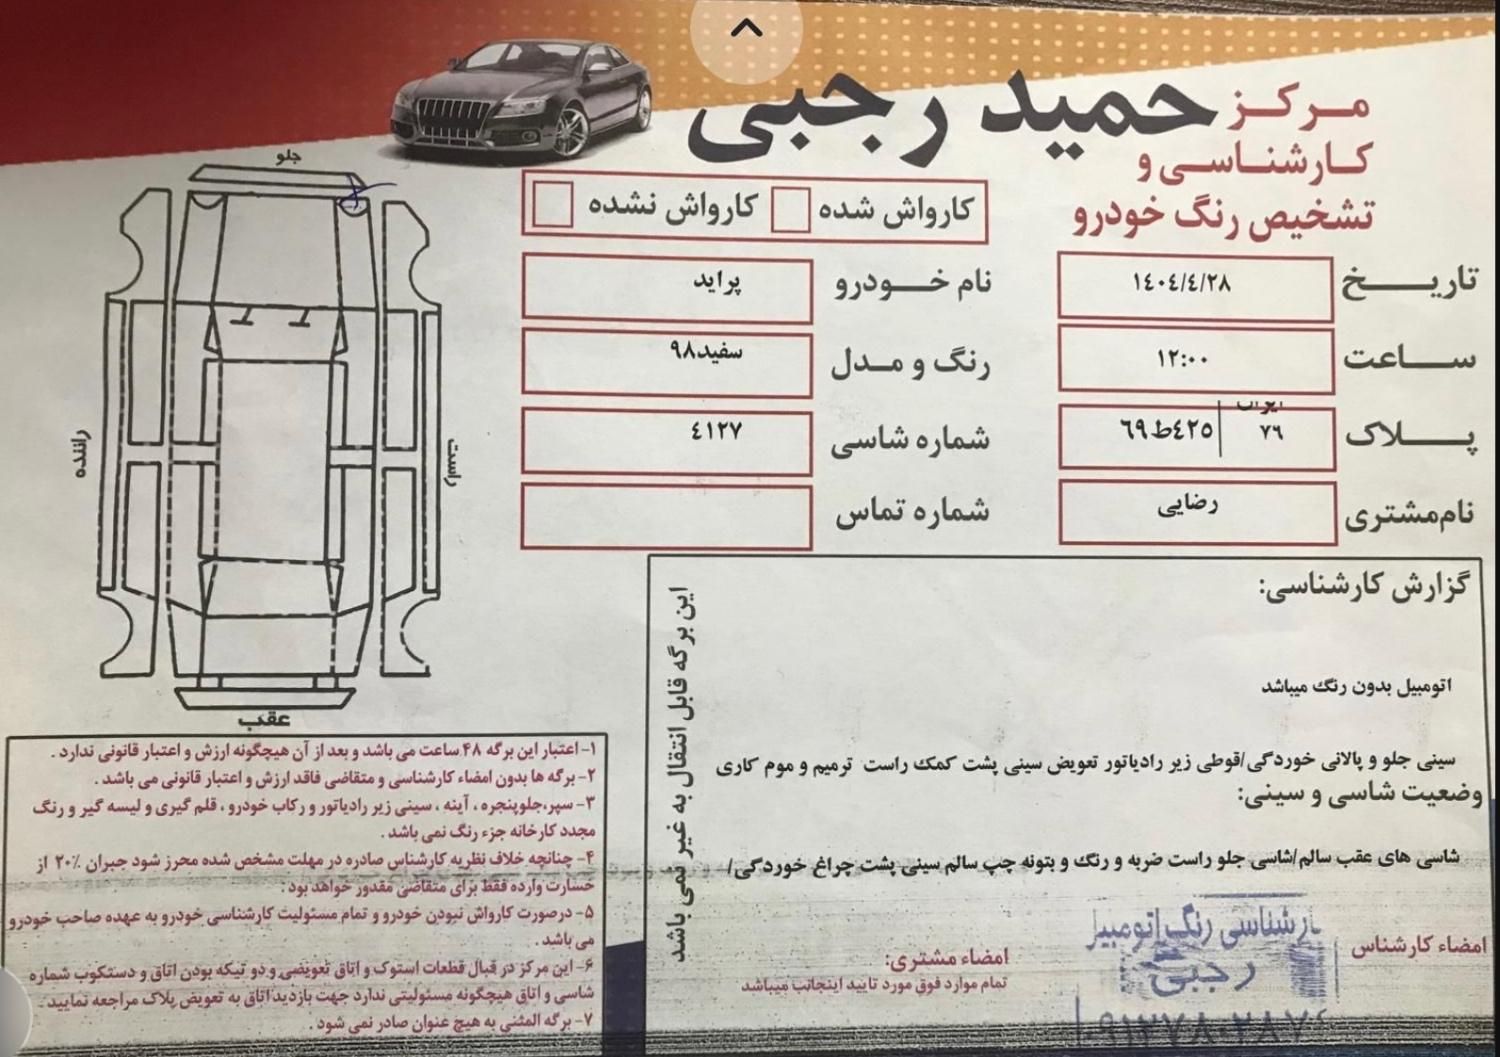 مرکز
حمید رجبی
کارشناسی و
تشخیص رنگ خودرو
کارواش شده
کارواش نشده
تاریخ
۱٤۰٤/٤/۲۸
نام خودرو
پراید
ساعت
۱۲:۰۰
رنگ و مدل
سفید۹۸
پلاک
ایران
۷۶
٤۲٥ط۶۹
شماره شاسی
٤۱۲۷
نام‌مشتری
رضایی
شماره تماس
جلو
راننده
راست
عقب
گزارش کارشناسی:
اتومبیل بدون رنگ میباشد
سینی جلو و پالانی خوردگی/قوطی زیر رادیاتور تعویض سینی پشت کمک راست ترمیم و موم کاری
وضعیت شاسی و سینی:
شاسی های عقب سالم/شاسی جلو راست ضربه و رنگ و بتونه چپ سالم سینی پشت چراغ خوردگی/
این برگه قابل انتقال به غیر نمی باشد
امضاء کارشناس
کارشناسی رنگ اتومبیل
رجبی
امضاء مشتری:
تمام موارد فوق مورد تایید اینجانب میباشد
۱- اعتبار این برگه ۴۸ ساعت می باشد و بعد از آن هیچگونه ارزش و اعتبار قانونی ندارد .
۲- برگه ها بدون امضاء کارشناسی و متقاضی فاقد ارزش و اعتبار قانونی می باشد .
۳- سپر،جلوپنجره ، آینه ، سینی زیر رادیاتور و رکاب خودرو ، قلم گیری و لیسه گیر و رنگ
مجدد کارخانه جزء رنگ نمی باشد .
۴- چنانچه خلاف نظریه کارشناس صادره در مهلت مشخص شده محرز شود جبران ۲۰٪ از
خسارت وارده فقط برای متقاضی مقدور خواهد بود .
۵- درصورت کارواش نبودن خودرو و تمام مسئولیت کارشناسی خودرو به عهده صاحب خودرو
می باشد .
۶- این مرکز در قبال قطعات استوک و اتاق تعویضی و دو تیکه بودن اتاق و دستکوب شماره
شاسی و اتاق هیچگونه مسئولیتی ندارد جهت بازدید اتاق به تعویض پلاک مراجعه نمایید .
۷- برگه المثنی به هیچ عنوان صادر نمی شود .